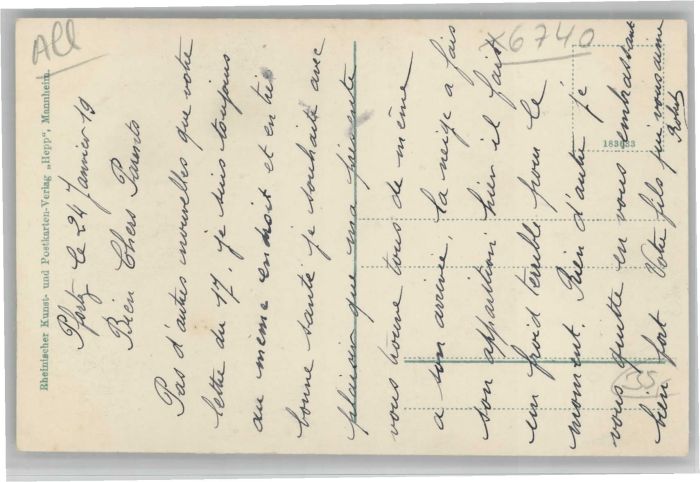 All
*6740
Rheinischer Kunst- und Postkarten-Verlag „Hepp", Mannheim.
183633
Pfortz le 24 Janvier 19
Bien Chers Parents
Pas d'autres nouvelles que votre
lettre du 17, je suis toujours
au même endroit et en très
bonne santé je souhaite avec
plaisir que ma présente
vous trouve tous de même
a son arrivée. la neige a fais
son apparition hier il fait
un froid terrible pour le
moment. Rien d'autre je
vous quitte en vous embrassant
bien fort Votre fils qui vous aime